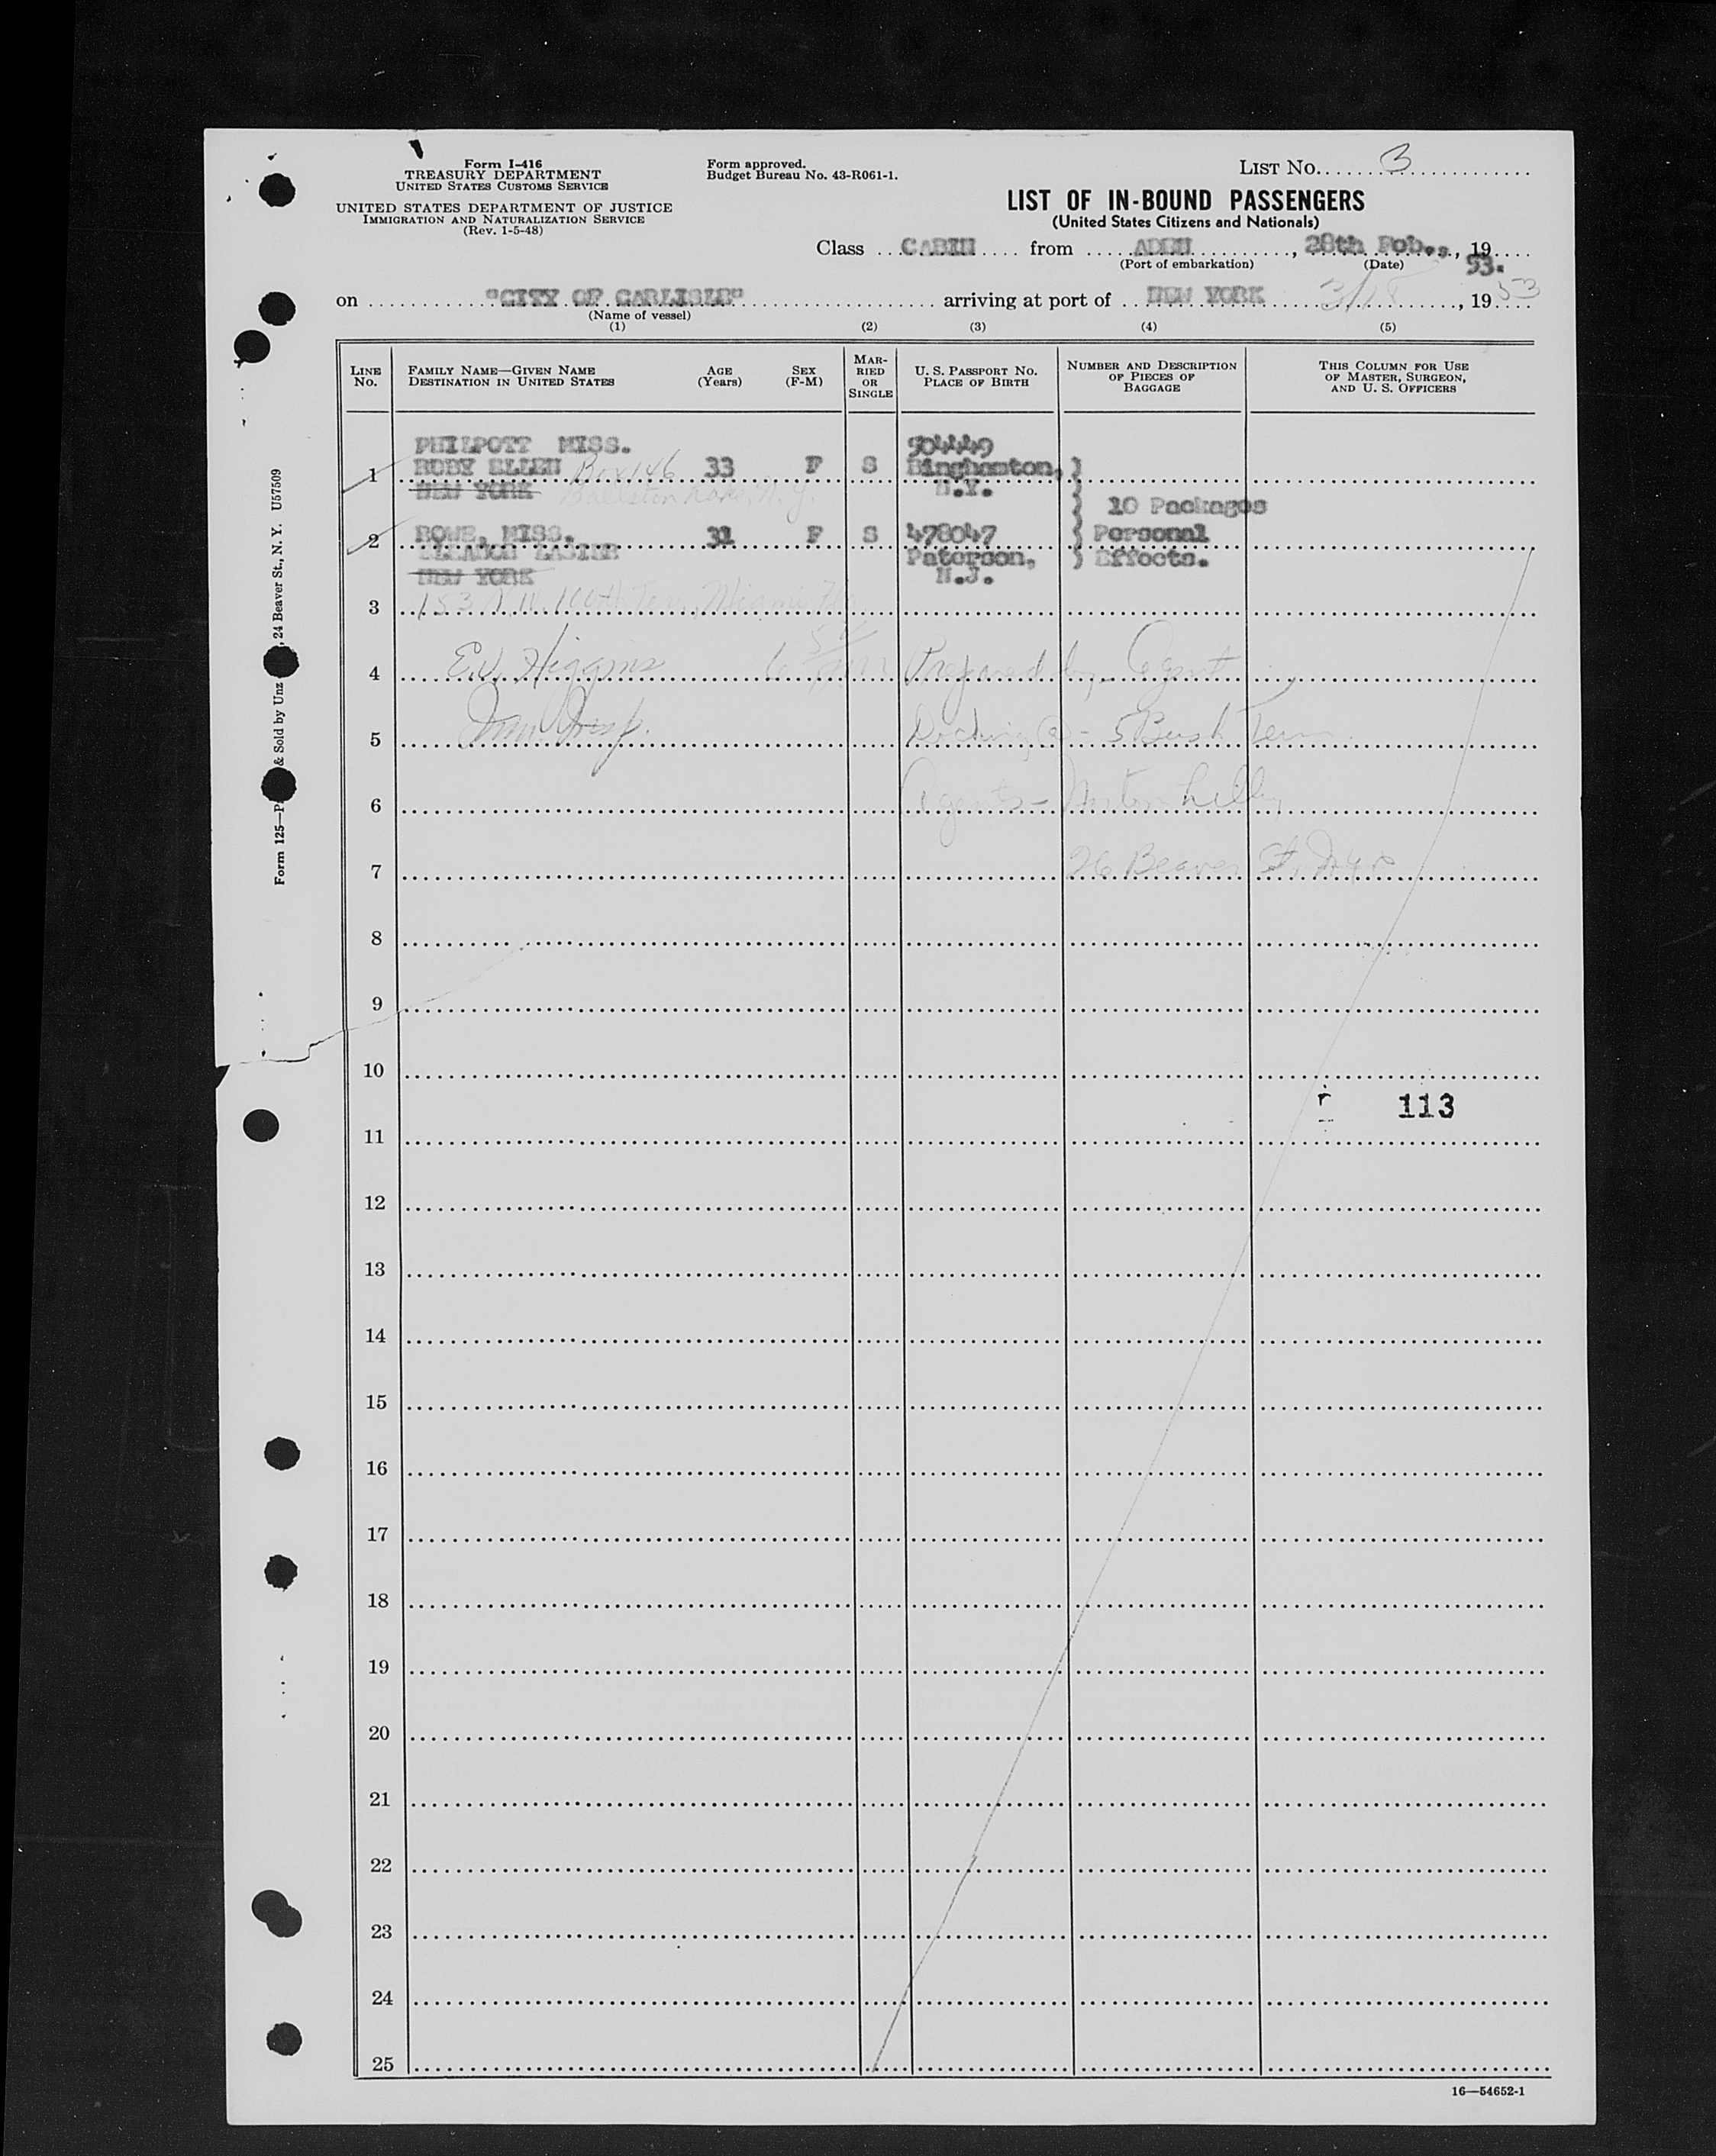 Form I-416
TREASURY DEPARTMENT
UNITED STATES CUSTOMS SERVICE
UNITED STATES DEPARTMENT OF JUSTICE
IMMIGRATION AND NATURALIZATION SERVICE
(Rev. 1-5-48)
Form approved.
Budget Bureau No. 43-R061-1.
LIST No. 3
LIST OF IN-BOUND PASSENGERS
(United States Citizens and Nationals)
Class CABIN from ADEN, 28th Feb., 19 53.
(Port of embarkation) (Date)
on "CITY OF CARLISLE" arriving at port of NEW YORK 3/18, 19 53
(Name of vessel)
(1) (2) (3) (4) (5)
LINE No. FAMILY NAME—GIVEN NAME DESTINATION IN UNITED STATES AGE (Years) SEX (F-M) MARRIED OR SINGLE U. S. PASSPORT No. PLACE OF BIRTH NUMBER AND DESCRIPTION OF PIECES OF BAGGAGE THIS COLUMN FOR USE OF MASTER, SURGEON, AND U. S. OFFICERS
PHILPOTT MISS. 504449
1 RUBY ELLEN Box 146 33 F S Binghamton, }
NEW YORK Ballston N.Y. N.Y.
} 10 Packages
2 ROWE, MISS. 31 F S 478047 } Personal
ELEANOR EASTER Paterson, } Effects.
NEW YORK N.J.
3 153 N.W. Miami
4 E.W. Higgins 6 Prepared by Agent
5 Docking @ - 5 Bush Term.
6 Agents - Norton Lilly
7 26 Beaver St. N.Y.C
8
9
10
113
11
12
13
14
15
16
17
18
19
20
21
22
23
24
25
16—54652-1
Form 125— & Sold by Unz , 24 Beaver St., N. Y. U57509